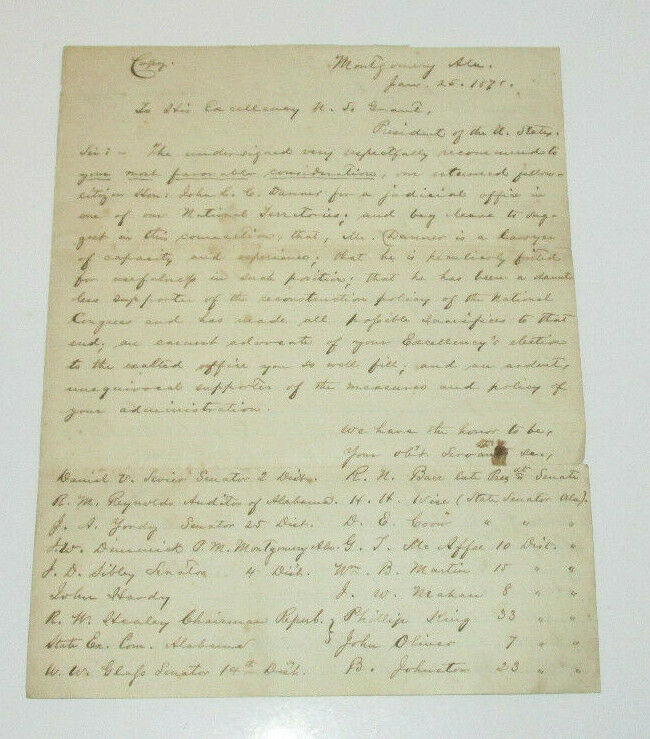 Copy.
Montgomery Ala.
Jan. 25. 1871.
To His Excellency U. S. Grant,
President of the U. States.
Sir:- The undersigned very respectfully recommend to
your most favorable consideration, our esteemed fellow-
citizen Hon: John L. C. Danner for a judicial office in
one of our National Territories; and beg leave to sug-
gest in this connection, that, Mr. Danner is a lawyer
of capacity and experience; that he is peculiarly fitted
for usefulness in such position; that he has been a daunt-
less supporter of the reconstruction policy of the National
Congress and has made all possible sacrifices to that
end; an earnest advocate of your Excellency's election
to the exalted office you so well fill; and an ardent,
unequivocal supporter of the measures and policy of
your administration.
We have the honor to be,
Your obt. Servants &c,
Daniel V. Sevier Senator 2 Dist. R. N. Barr late Prest Senate
R. M. Reynolds Auditor of Alabama. H. H. Wise (State Senator Ala).
J. A. Yordy Senator 25 Dist. D. E. Coon " " "
J. W. Dimmick P. M. Montgomery Ala. G. T. McAffee 10 Dist. "
J. D. Sibley Senator 4 Dist. Wm. B. Martin 15 " "
John Hardy J. W. Mahan 8 " "
R. W. Healey Chairman Repub. } Phillip King 33 " "
State Ex. Com. Alabama John Oliver 7 " "
W. W. Glass Senator 14th Dist. B. Johnston 23 " "